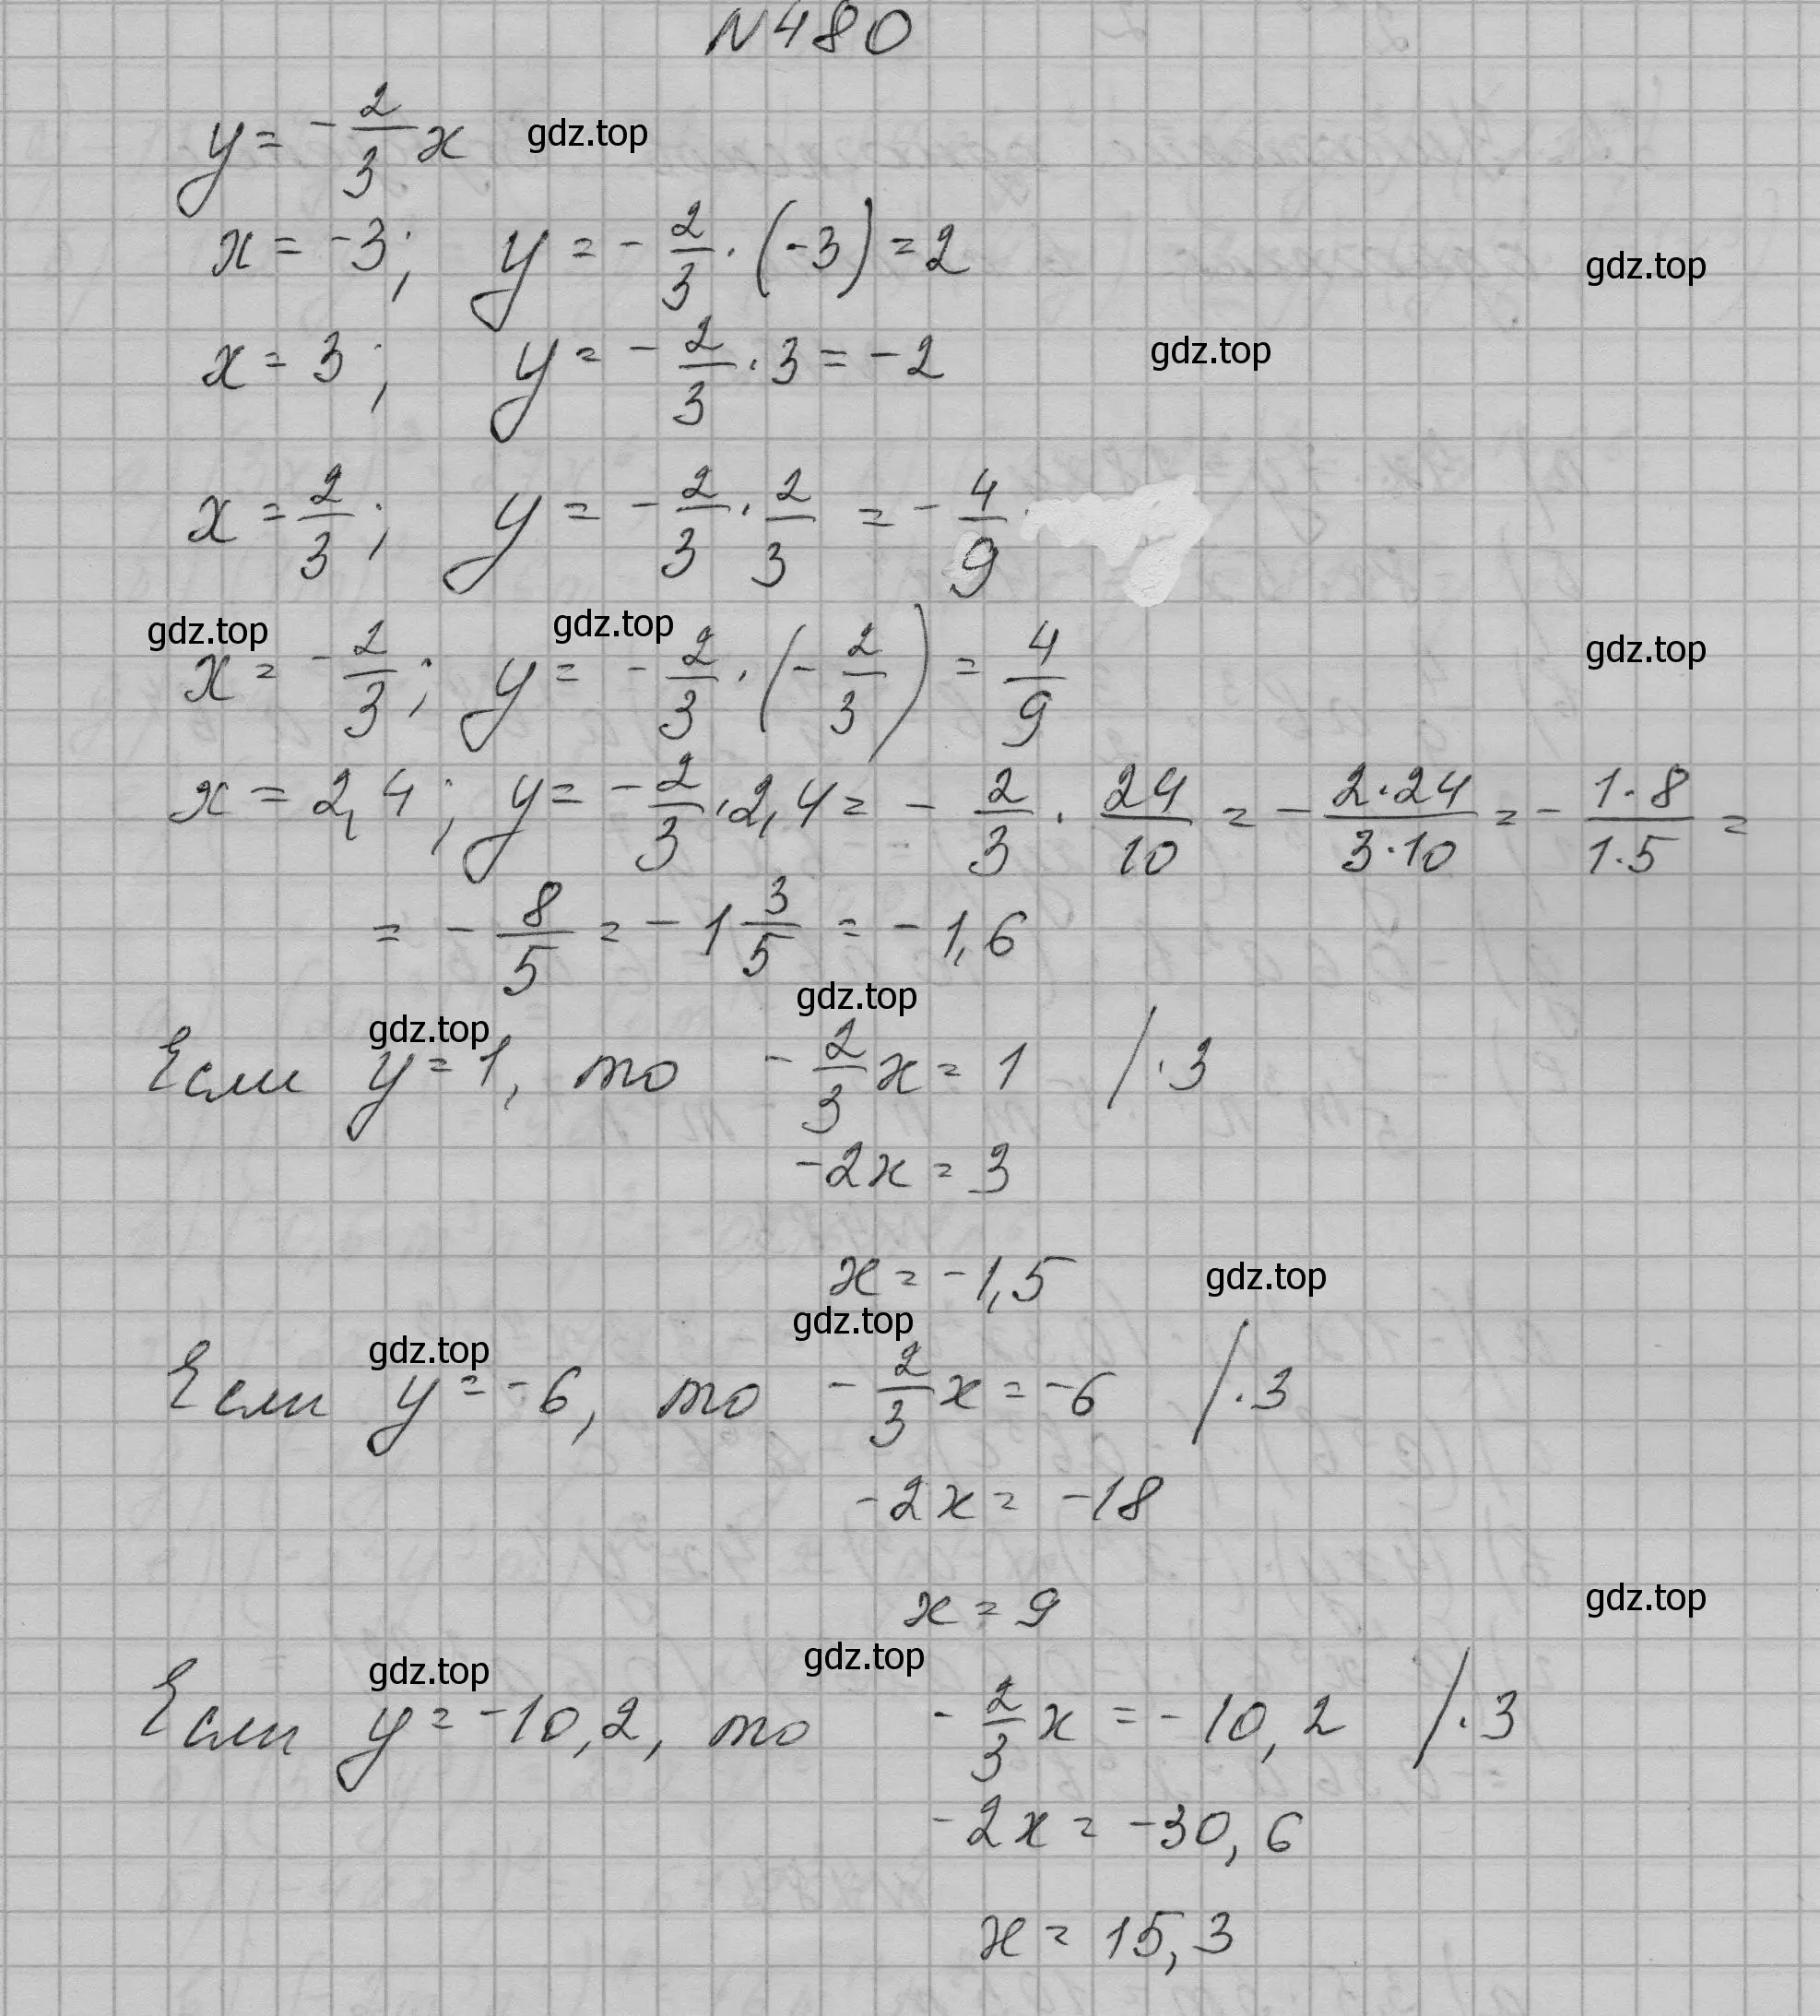 N480
y = -2/3 x gdz.top
x = -3; y = -2/3 · (-3) = 2 gdz.top
x = 3; y = -2/3 · 3 = -2 gdz.top
x = 2/3; y = -2/3 · 2/3 = -4/9
gdz.top gdz.top gdz.top
x = -2/3; y = -2/3 · (-2/3) = 4/9
x = 2,4; y = -2/3 · 2,4 = -2/3 · 24/10 = -2·24/3·10 = -1·8/1·5 =
= -8/5 = -1 3/5 = -1,6
gdz.top gdz.top
Если y = 1, то -2/3 x = 1 / ·3
-2x = 3
x = -1,5 gdz.top
gdz.top gdz.top
Если y = -6, то -2/3 x = -6 / ·3
-2x = -18
x = 9 gdz.top
gdz.top gdz.top
Если y = -10,2, то -2/3 x = -10,2 / ·3
-2x = -30,6
x = 15,3